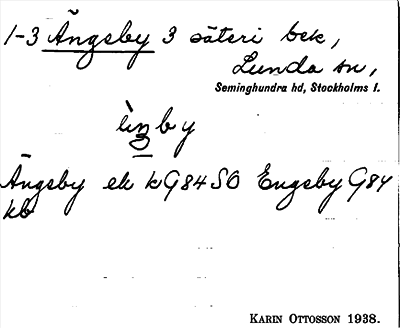 1-3 Ängsby 3 säteri bek,
Lunda sn,
Seminghundra hd, Stockholms l.
Ängsby ek kG84SO Engsby G84
kb
KARIN OTTOSSON 1938.